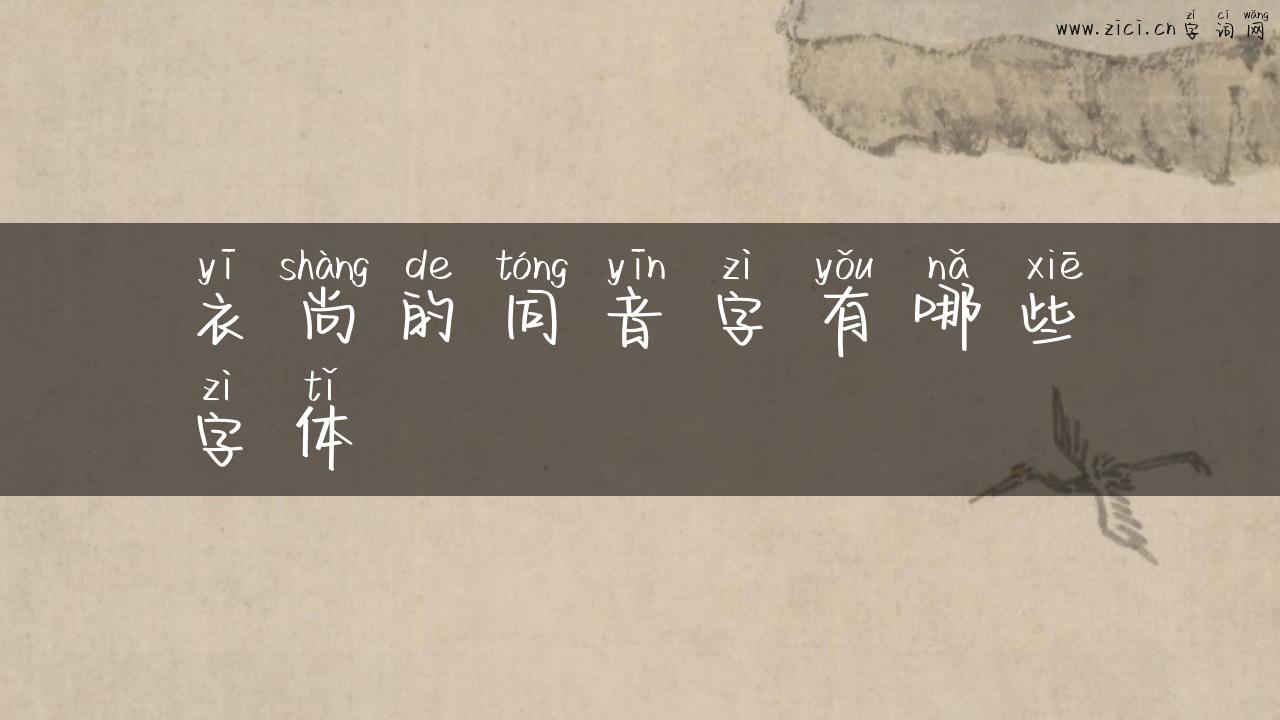 zì cí wǎng
www.zici.cn 字 词 网
yī shàng de tóng yīn zì yǒu nǎ xiē
衣 尚 的 同 音 字 有 哪 些
zì tǐ
字 体